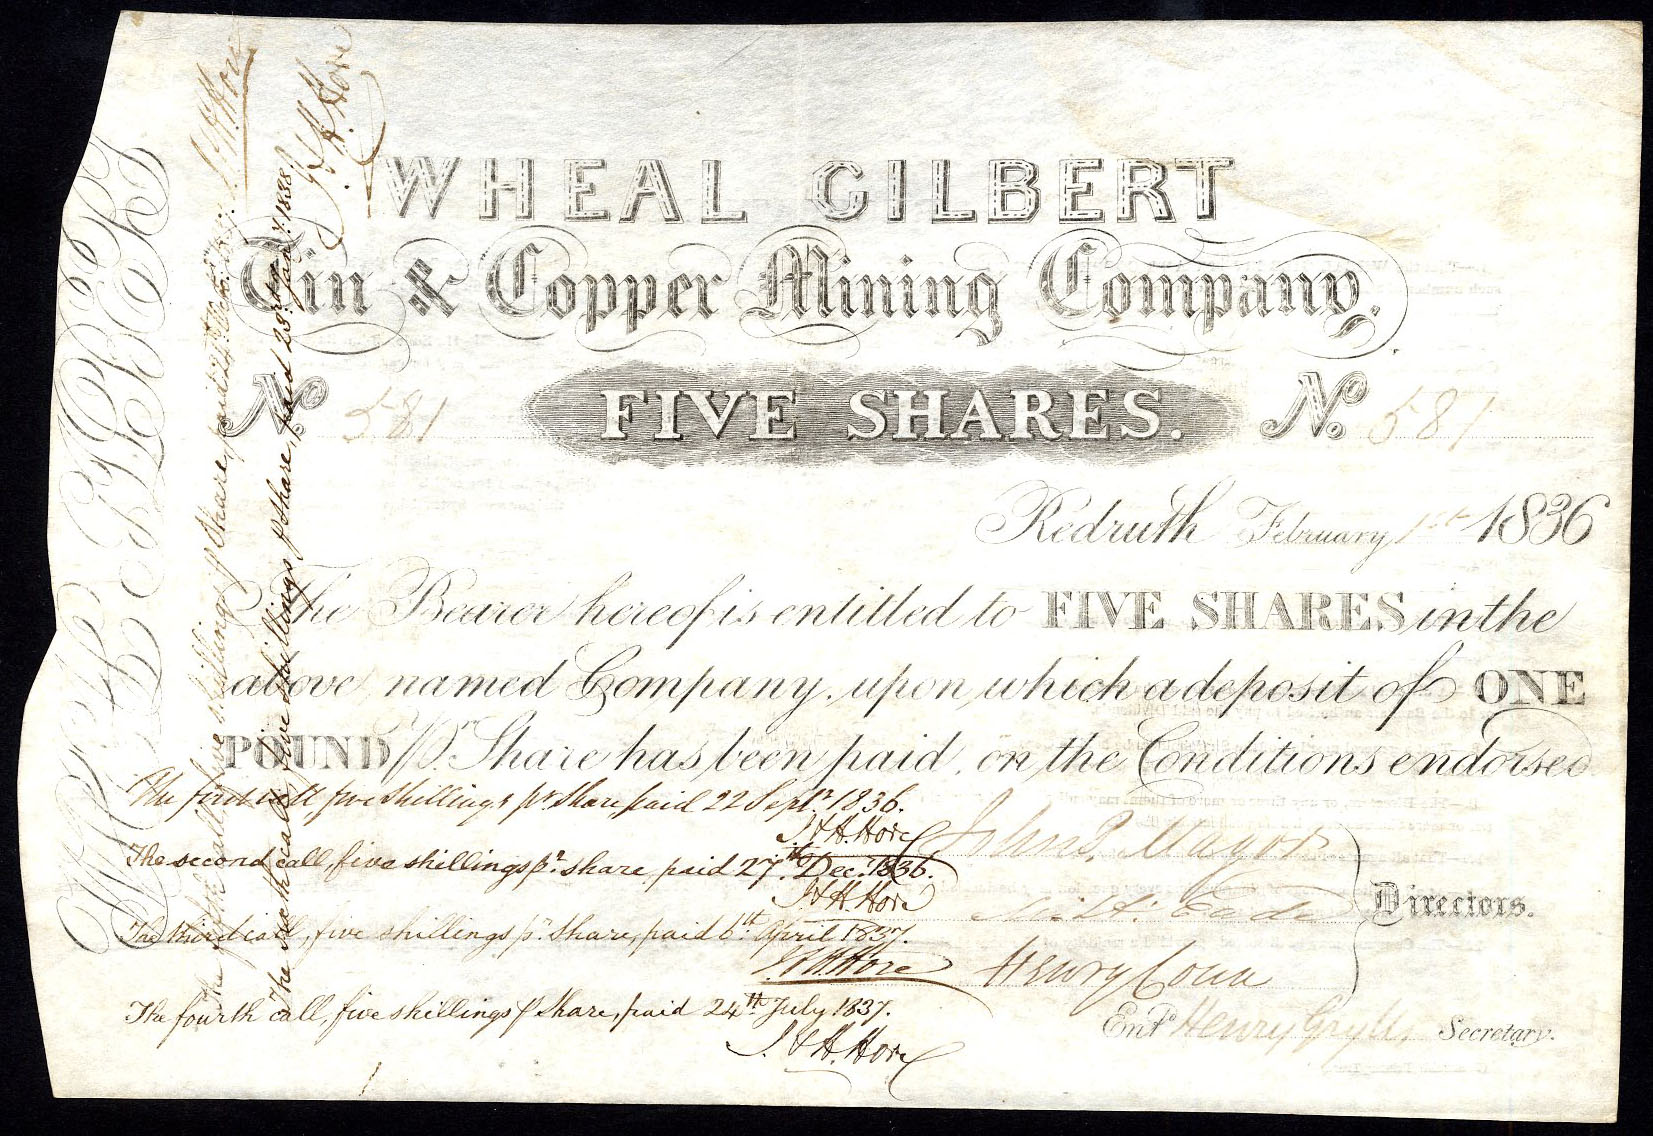 WHEAL GILBERT
Tin & Copper Mining Company.
No. 581 FIVE SHARES. No. 581
Redruth February 1st 1836
The Bearer hereof is entitled to FIVE SHARES in the
above named Company, upon which a deposit of ONE
POUND pr. Share has been paid, on the Conditions endorsed
The first call five shillings pr. share, paid 22 Sepr. 1836.
J. & H. Hore
The second call, five shillings pr. share, paid 27th Dec. 1836.
J & H. Hore
The third call, five shillings pr. share, paid 6th April 1837.
J & H Hore
The fourth call, five shillings p share, paid 24th July 1837.
J. & H. Hore
The fifth call five shillings p Share, paid
The sixth call, five shillings p Share, paid 23rd Jany. 1838
J & H. Hore
John Mayor
Henry Conn
Directors.
Entd. Henry Grylls, Secretary.